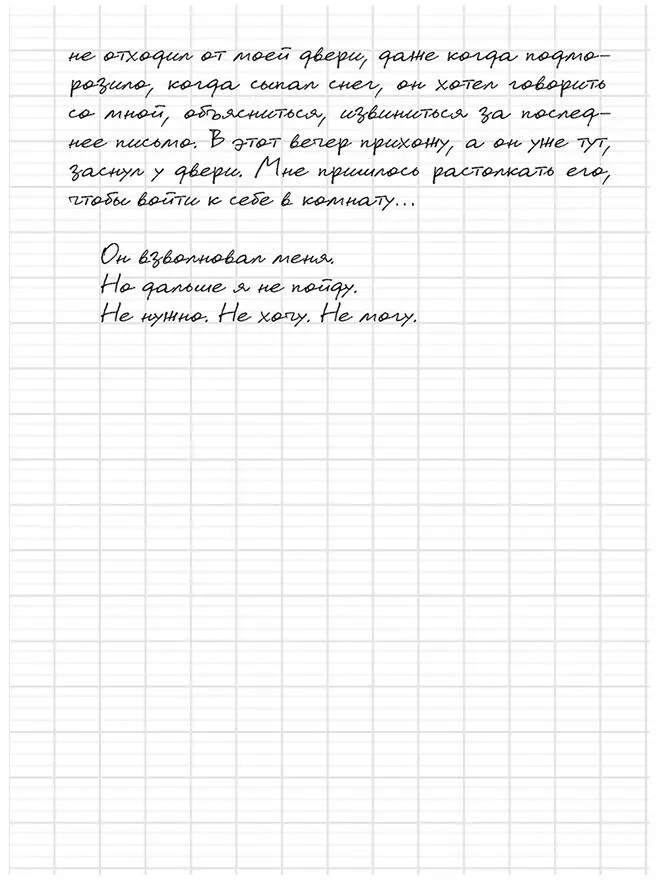 не отходил от моей двери, даже когда подмо-
розило, когда сыпал снег, он хотел говорить
со мной, объясниться, извиниться за послед-
нее письмо. В этот вечер прихожу, а он уже тут,
заснул у двери. Мне пришлось растолкать его,
чтобы войти к себе в комнату...
Он взволновал меня.
Но дальше я не пойду.
Не нужно. Не хочу. Не могу.